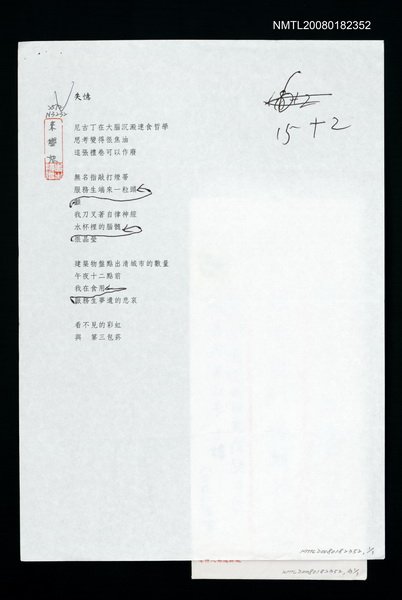 NMTL20080182352
失憶
15+2
尼古丁在大腦沉澱速食哲學
思考變得很焦油
這張禮卷可以作廢
無名指敲打煙蒂
服務生端來一粒頭
顱
我刀叉著自律神經
水杯裡的腦髓
很晶瑩
建築物盤點出清城市的數量
午夜十二點前
我在食用
服務生夢遺的悲哀
看不見的彩虹
與 第三包菸
NMTL20080182352, 1/1
NMTL20080182352,